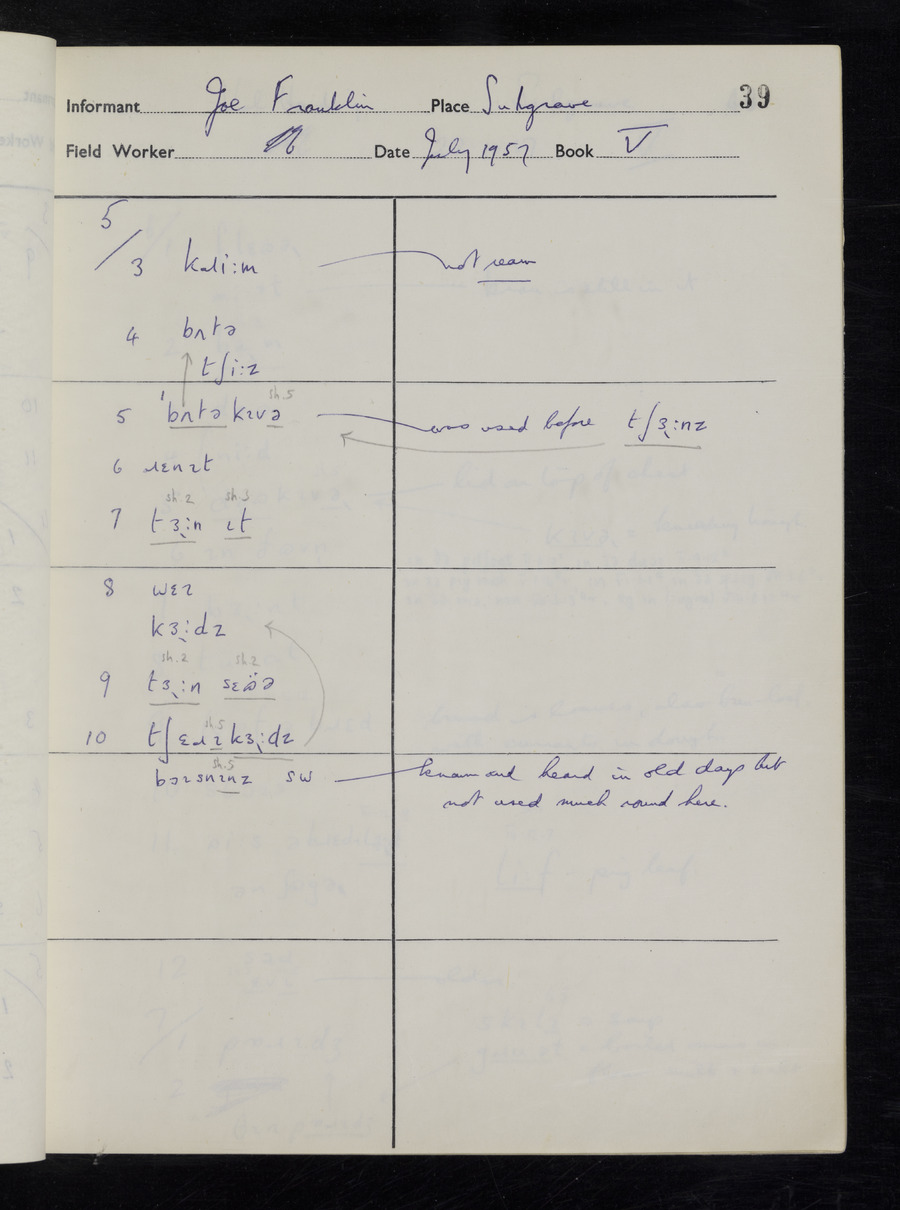 Informant Joe Franklin Place Sulgrave 39
Field Worker Date July 1957 Book V
5
/ 3 kɹiːm not ream
4 bʌtə
tʃiːz
sh.5
5 ˈbʌtə kɪvə was used before tʃɜ̨ːnz
6 ɹɛnɪt
sh.2 sh.3
7 tɜ̨ːn ɪt
8 wɛɪ
kɜ̨ːdz
sh.2 sh.2
9 tɜ̨ːn
sh.5
10 tʃɛɹɪkɜ̨ːdz
sh.5
bɔɪsnɪnz sw known and heard in old days but
not used much round here.